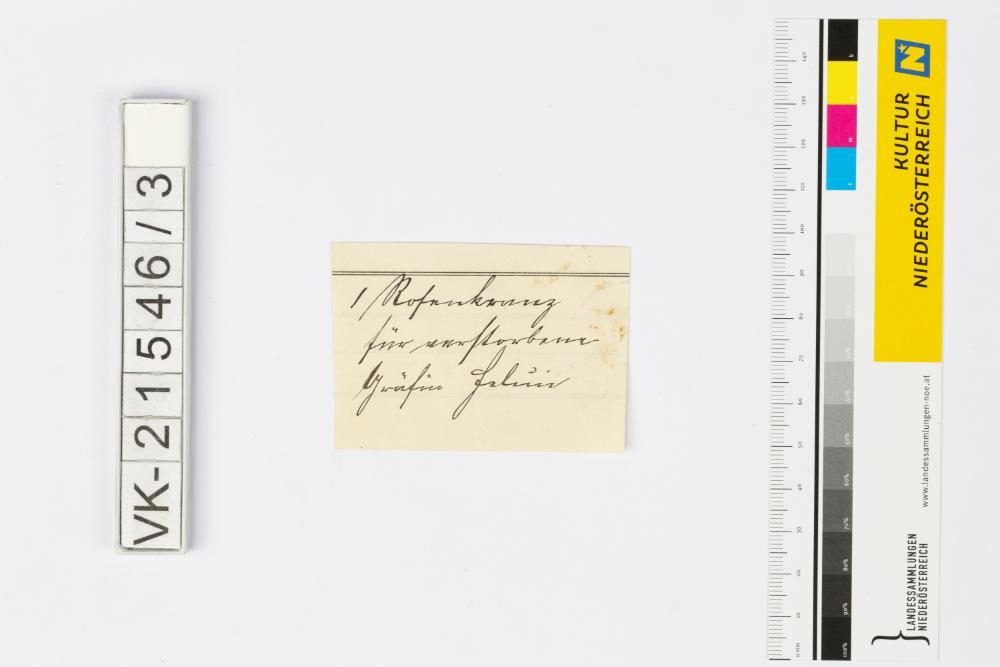 VK-21546/3
1 Rosenkranz
für verstorbene
Gräfin
KULTUR
NIEDERÖSTERREICH
www.landessammlungen-noe.at
LANDESSAMMLUNGEN
NIEDERÖSTERREICH
140
130
120
110
100
90
80
70
60
50
40
30
20
10
0 mm
k
y
m
c
50%
60%
70%
80%
90%
100%